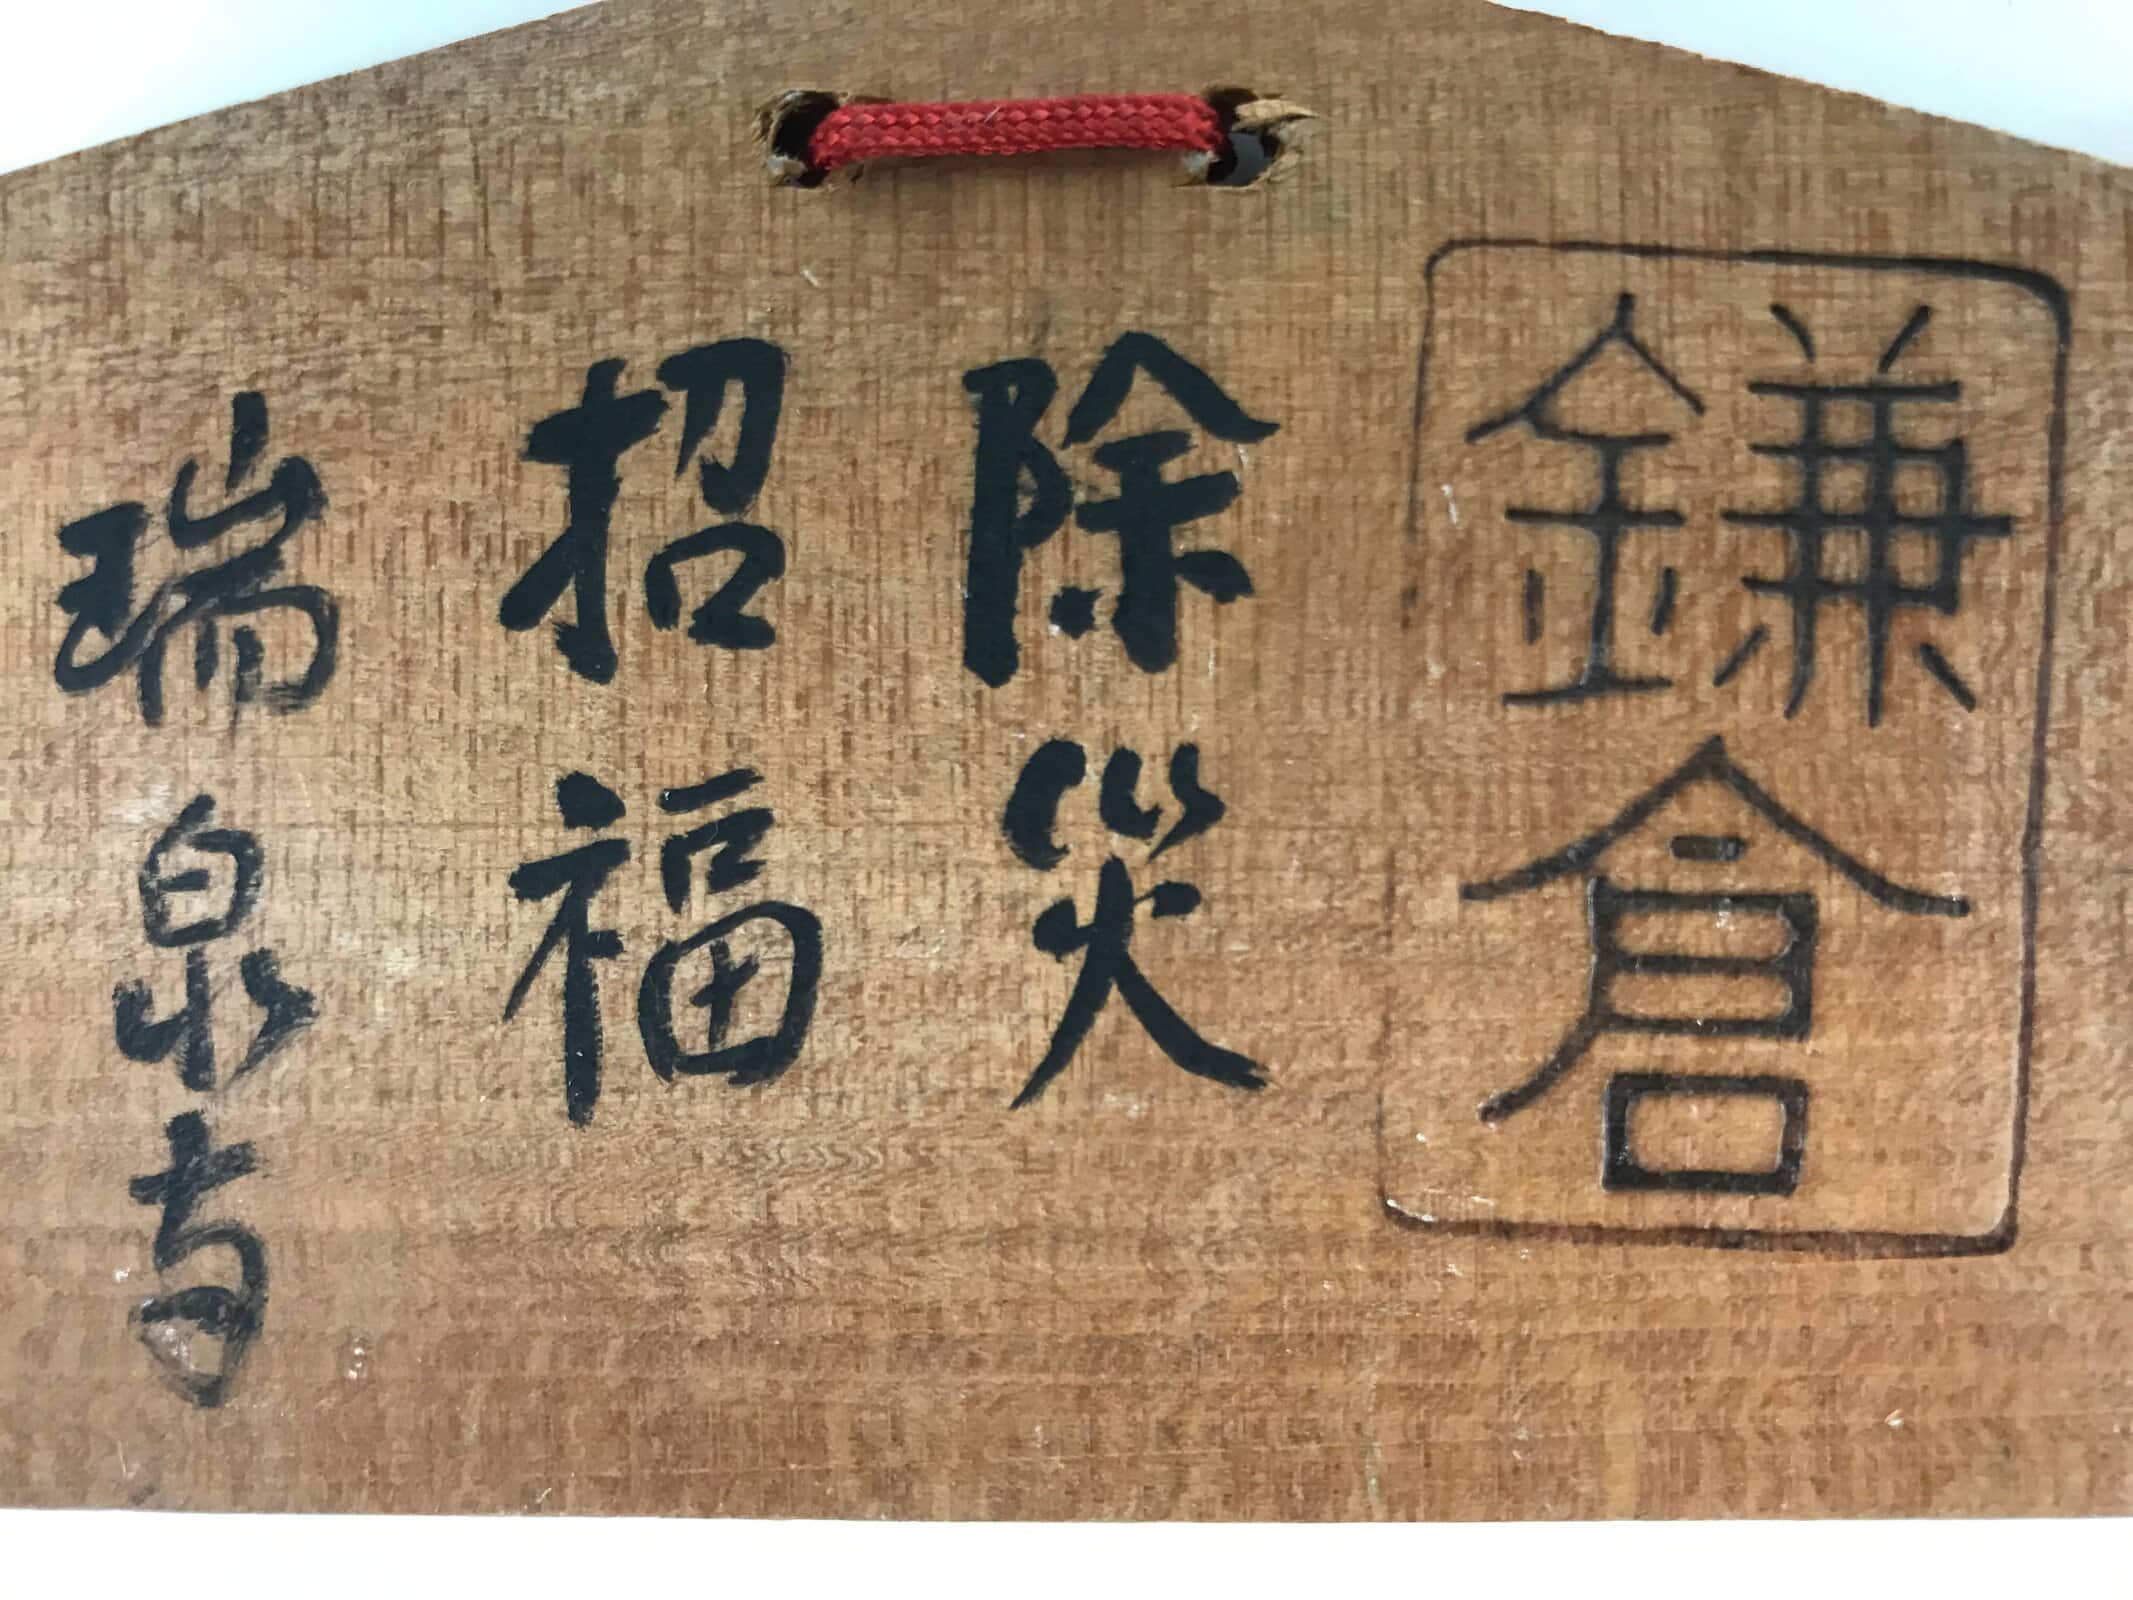 鎌倉
除災
招福
瑞泉寺